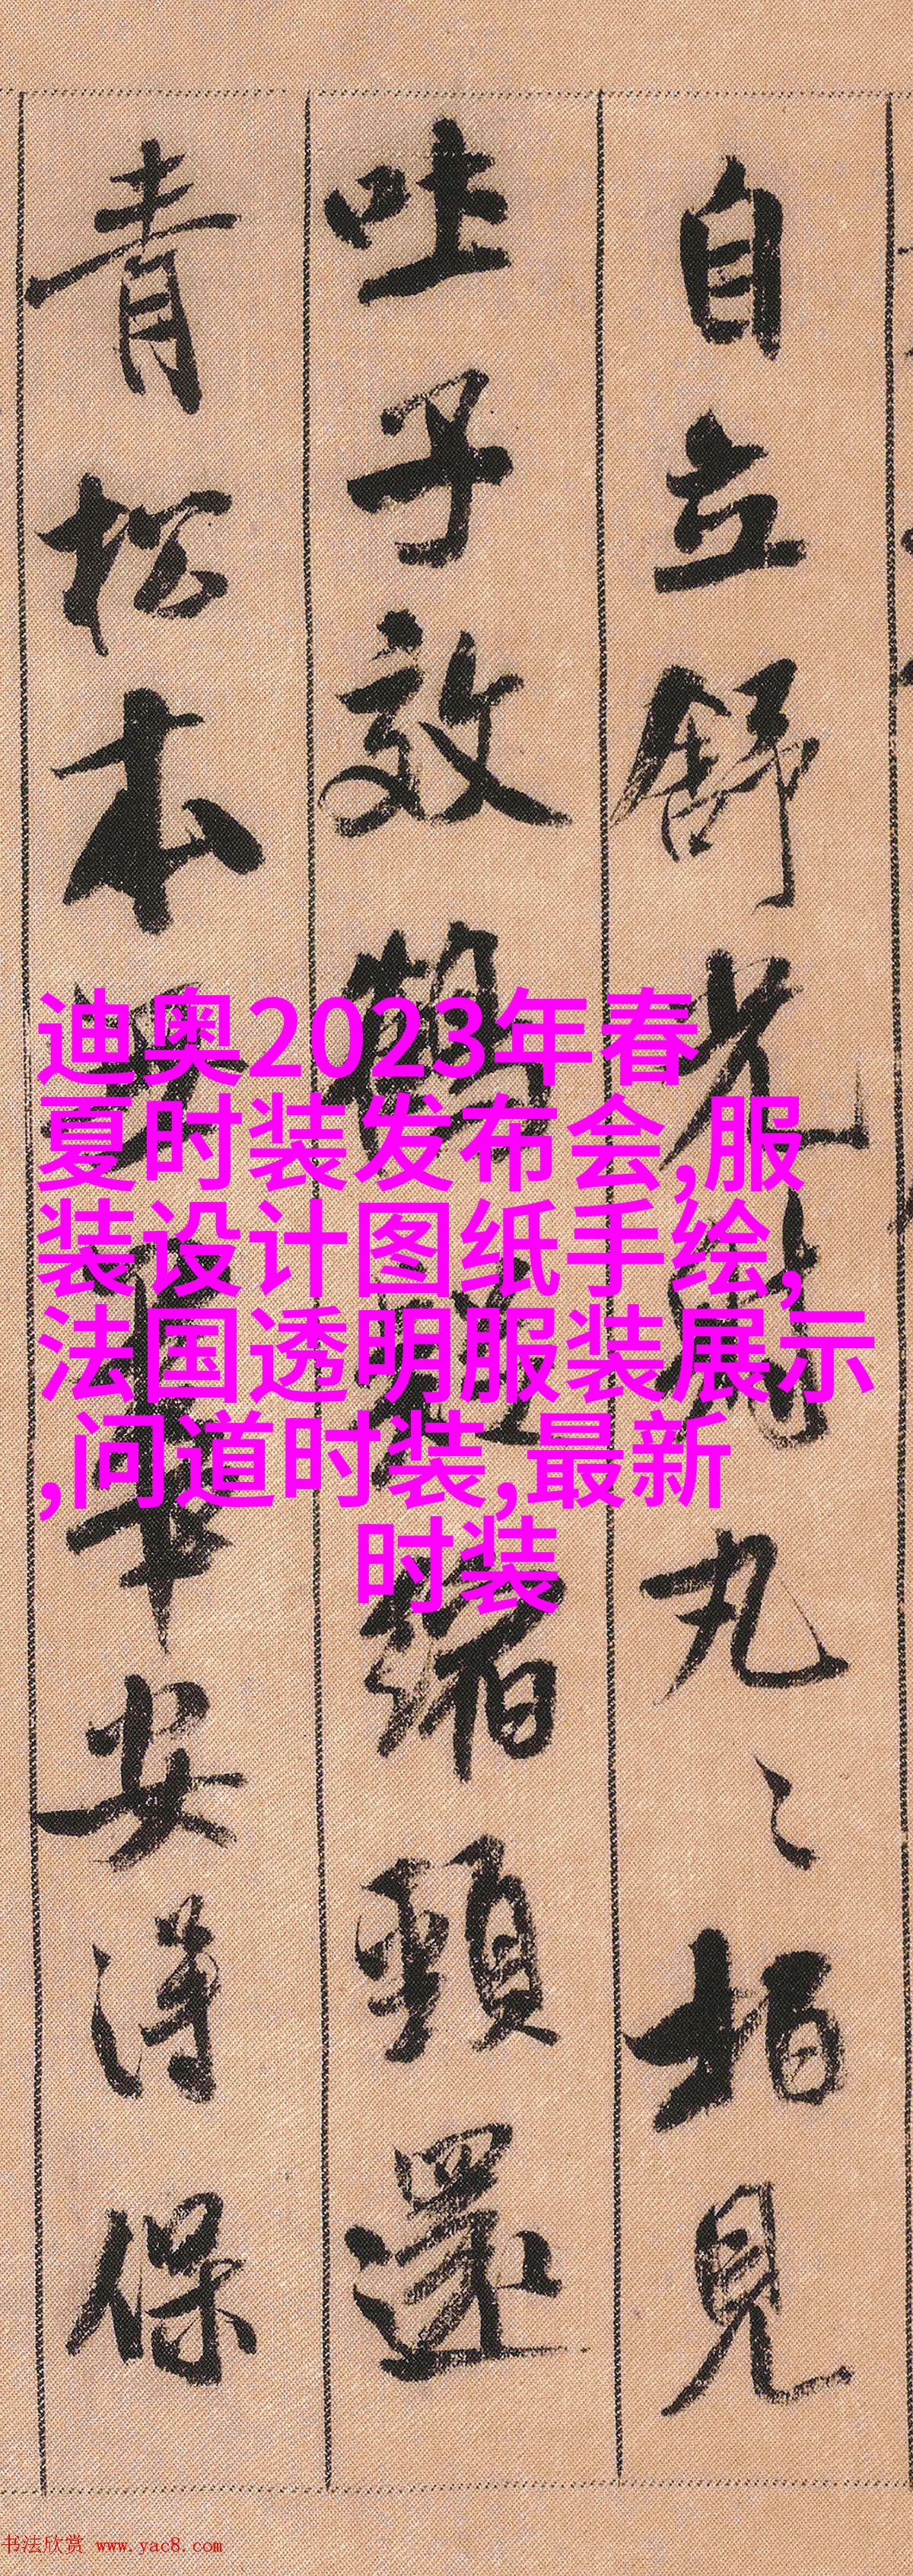 自立舒光射丸〻柏見
吐子效鶴疑縮頸還
青松本無華安得保
迪奥2023年春
夏时装发布会,服
装设计图纸手绘,
法国透明服装展示
,问道时装,最新
时装
书法欣赏 www.yac8.com